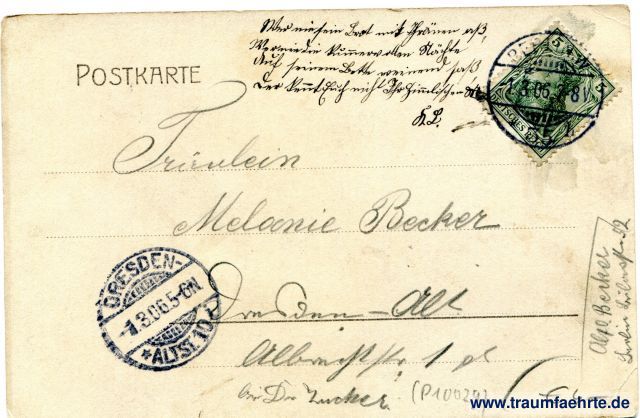 Wer nie sein Brot mit Thränen aß,
Wer nie die kummervollen Nächte
Auf seinem Bette weinend saß
Der kennt Euch nicht Ihr himmlischen
K.B.
POSTKARTE
5 * W
1.3.06. 7-8V.
Fräulein
Melanie Becker
DRESDEN-
-1.3.06.5-6N
*ALTST.10.
Dresden-Alt
Albrechtstr. 1 pt
bei Dr Zucker
(P10020)
Abs. Becker
Berlin
www.traumfaehrte.de